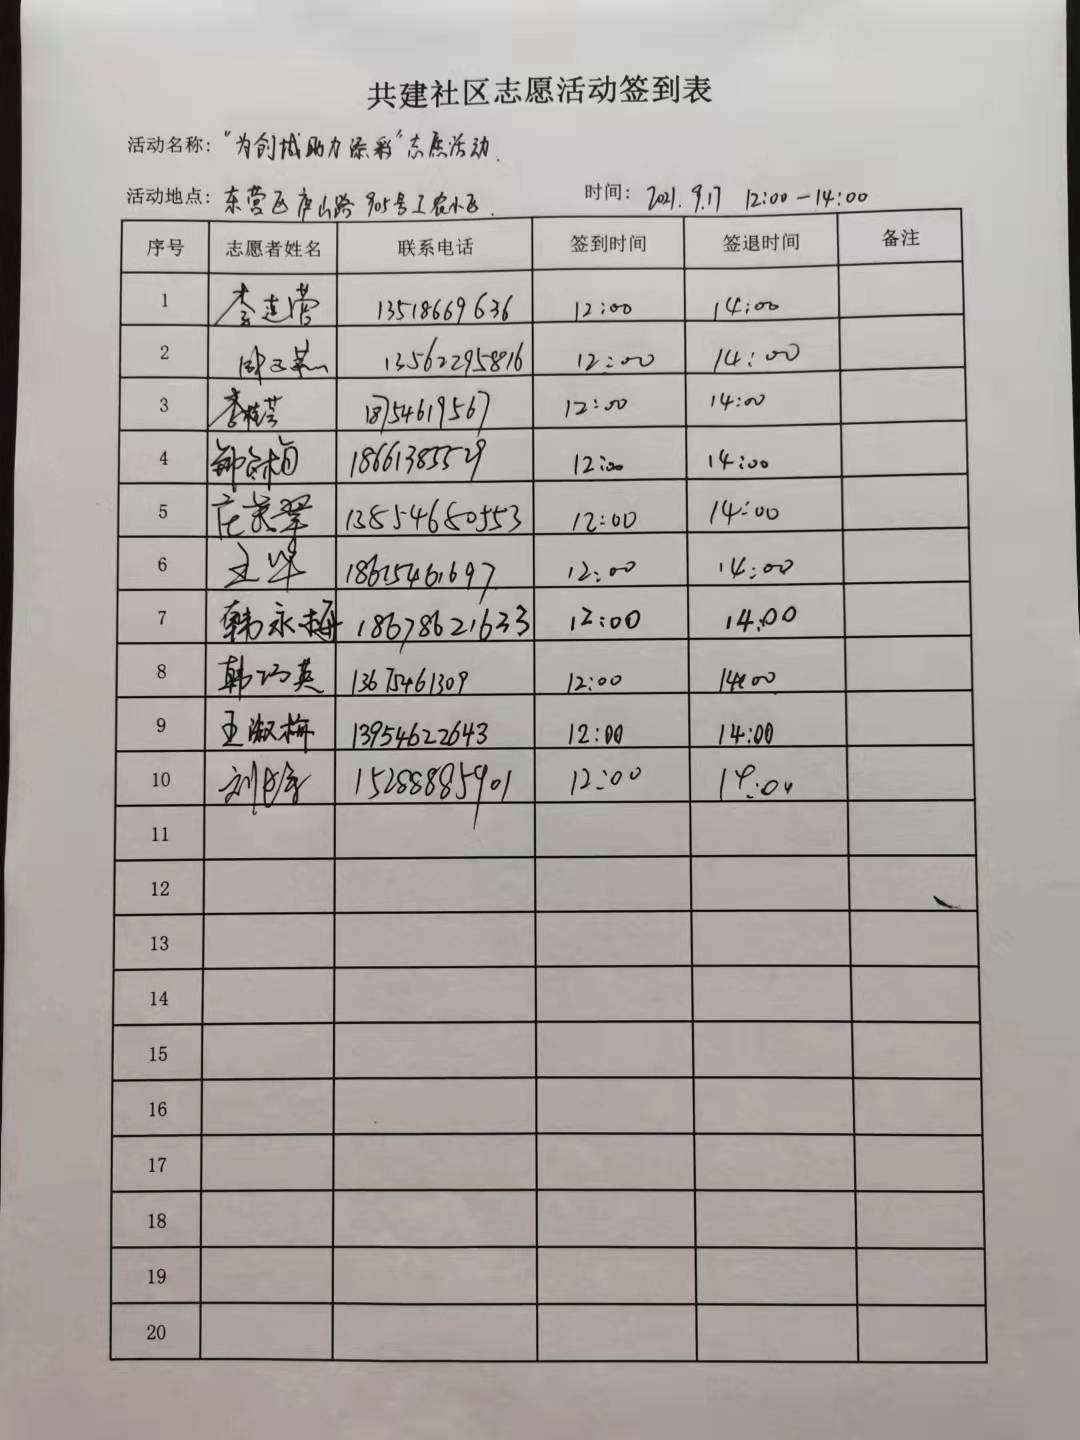 共建社区志愿活动签到表
活动名称：“为创城助力添彩”志愿活动.
活动地点：东营区庐山路905号工农小区. 时间：2021.9.17 12:00—14:00
序号 志愿者姓名 联系电话 签到时间 签退时间 备注
1 李连营 13518669636 12:00 14:00
2 13562295816 12:00 14:00
3 李桂芸 18754619567 12:00 14:00
4 18661385529 12:00 14:00
5 庄景翠 13854680553 12:00 14:00
6 王华 18625461697 12:00 14:00
7 韩永梅 18678621633 12:00 14:00
8 韩巧英 13675461309 12:00 14:00
9 王淑梅 13954622643 12:00 14:00
10 15288885901 12:00 14:00
11
12
13
14
15
16
17
18
19
20